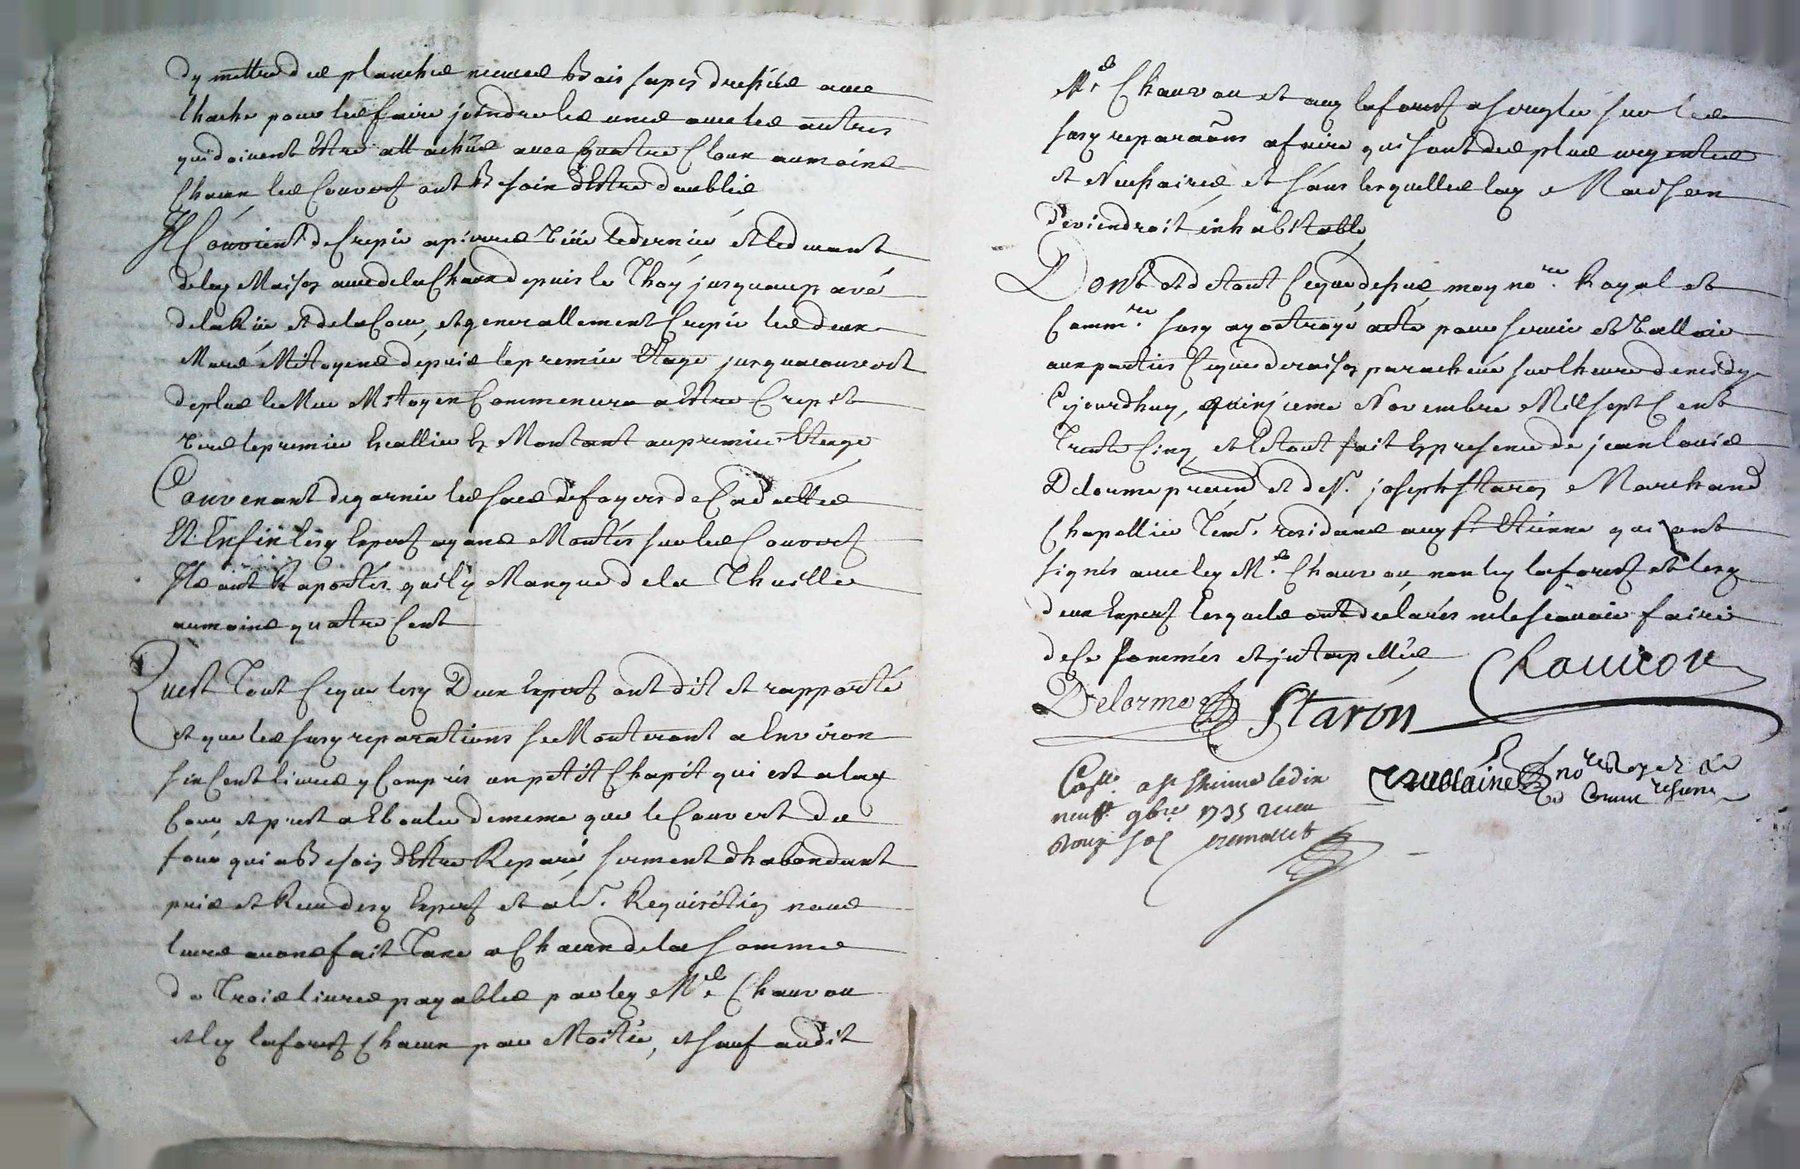 dy mettre des planches neuves bois sapin dressées avec
l'hache pour les faire joindre les unes avec les autres
qui doivent être attachées avec quatre Cloux aumoins
Chacun, les Couverts ont besoin dEstre doublés
Il Convient de Crepir apierres vües le dernier et le devant
delad Maison avec de la Chaux depuis le Thoy jusquau pavé
de la Rüe et de la Cour, et generallement Crepir les deux
Murs Mitoyens depuis le premier Etage jusquau couvert
de plus le Mur Mitoyen Commencera a Estre Crepit
vers le premier Escallier En Montant au premier Etage
Convenant de garnir les foyers de Cadettes
Et Enfin lesd Experts ayant Montés sur les Couverts
Ils ont Raportés quil y Manque de la Thuille
aumoins quatre Cent
Quest Tout Ceque lesd Deux Experts ont dit et rapporté
et que les susd reparations se Monteront a Environ
six Cent livres y Compris un petit Chapit qui est a lad
Cour et prest a Ebouler de meme que le Couvert du
four qui a Besoin dEstre Reparé, serment dhabondant
pris et Receu desd Experts et a lr. Requisition nous
leurs avons fait Taxe a Chacun de la somme
de Trois livres payables par led Mr. Chauvou
et led laforest Chacun par Moitié, et sauf audit
Mr. Chauvou et aud laforest a sougler sur les
susd reparaõns a faire qui sont des plus urgentes
et Necessaires, et sans lesquelles lad Maison
deviendroit inhabitable
Dont et de tout Ceque dessus, moy nore. Royal et
Commre. susd ay octroyé acte pour servir et valloir
aux parties Ceque de raison parachevé sur lheure de midy
Cejourdhuy, quinzieme Novembre Mil sept Cent
Trente Cinq, et le tout fait En presence de jean louis
Delorme pratcien et de Sr. joseph Staron Marchand
Chapellier Tem. residants aud St. Etienne qui ont
signés avec led Mr. Chauvou, non led laforest et lesd
deux Experts lesquels ont declarés ne le scavoir faire
de Ce sommés et interpellés
Chauvon
Delorme Staron
nore Royal
Conte. a St Etienne le dix
neuf 9bre 1735 receu
douze sols